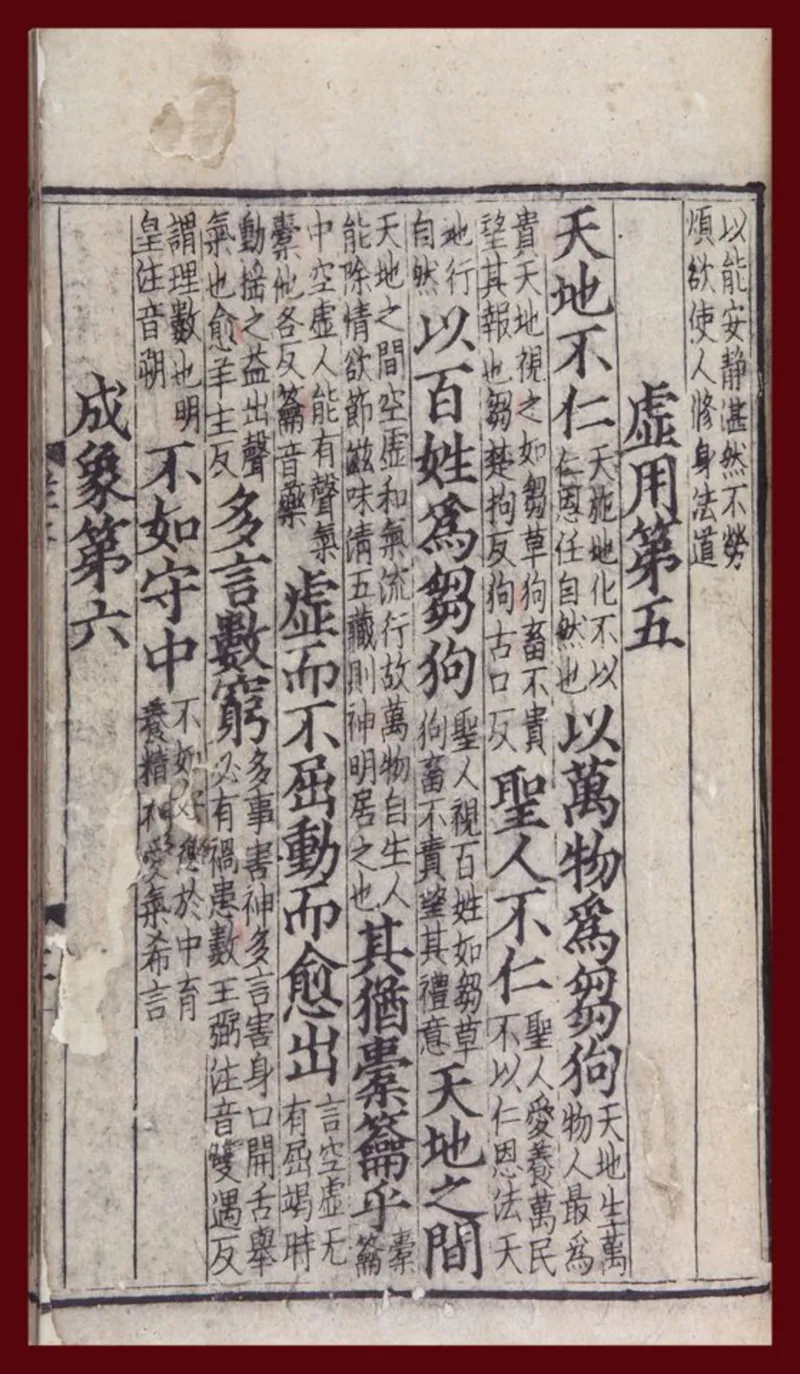 以能安靜湛然不勞煩欲使人修身法道
虛用第五
天地不仁天施地化不以仁恩任自然也以萬物爲芻狗天地生萬物人最爲
貴天地視之如芻草狗畜不貴望其報也芻楚拘反狗古口反聖人不仁聖人愛養萬民不以仁恩法天
地行自然以百姓爲芻狗聖人視百姓如芻草狗畜不責望其禮意天地之間
天地之間空虛和氣流行故萬物自生人能除情欲節滋味清五藏則神明居之也其猶橐籥乎橐籥
中空虛人能有聲氣橐他各反籥音藥虛而不屈動而愈出言空虛无有屈竭時
動搖之益出聲氣也愈羊主反多言數窮多事害神多言害身口開舌舉必有禍患數王弼注音雙遇反
謂理數也明皇注音朔不如守中不如守德於中育養精神愛氣希言
成象第六